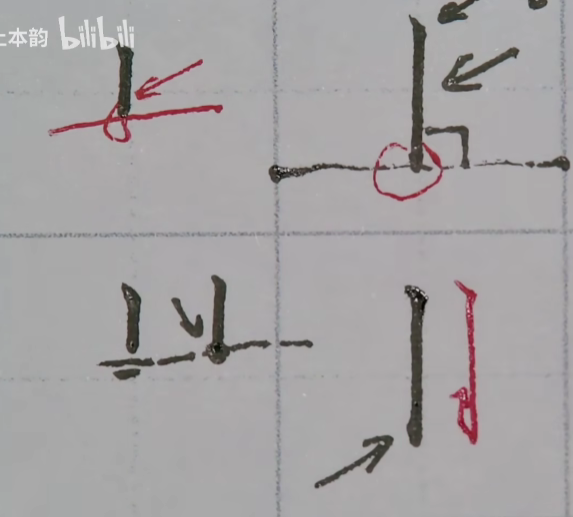 上本韵 bilibili